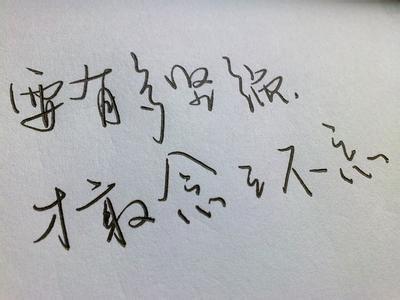 要有多坚强.
才敢念念不忘